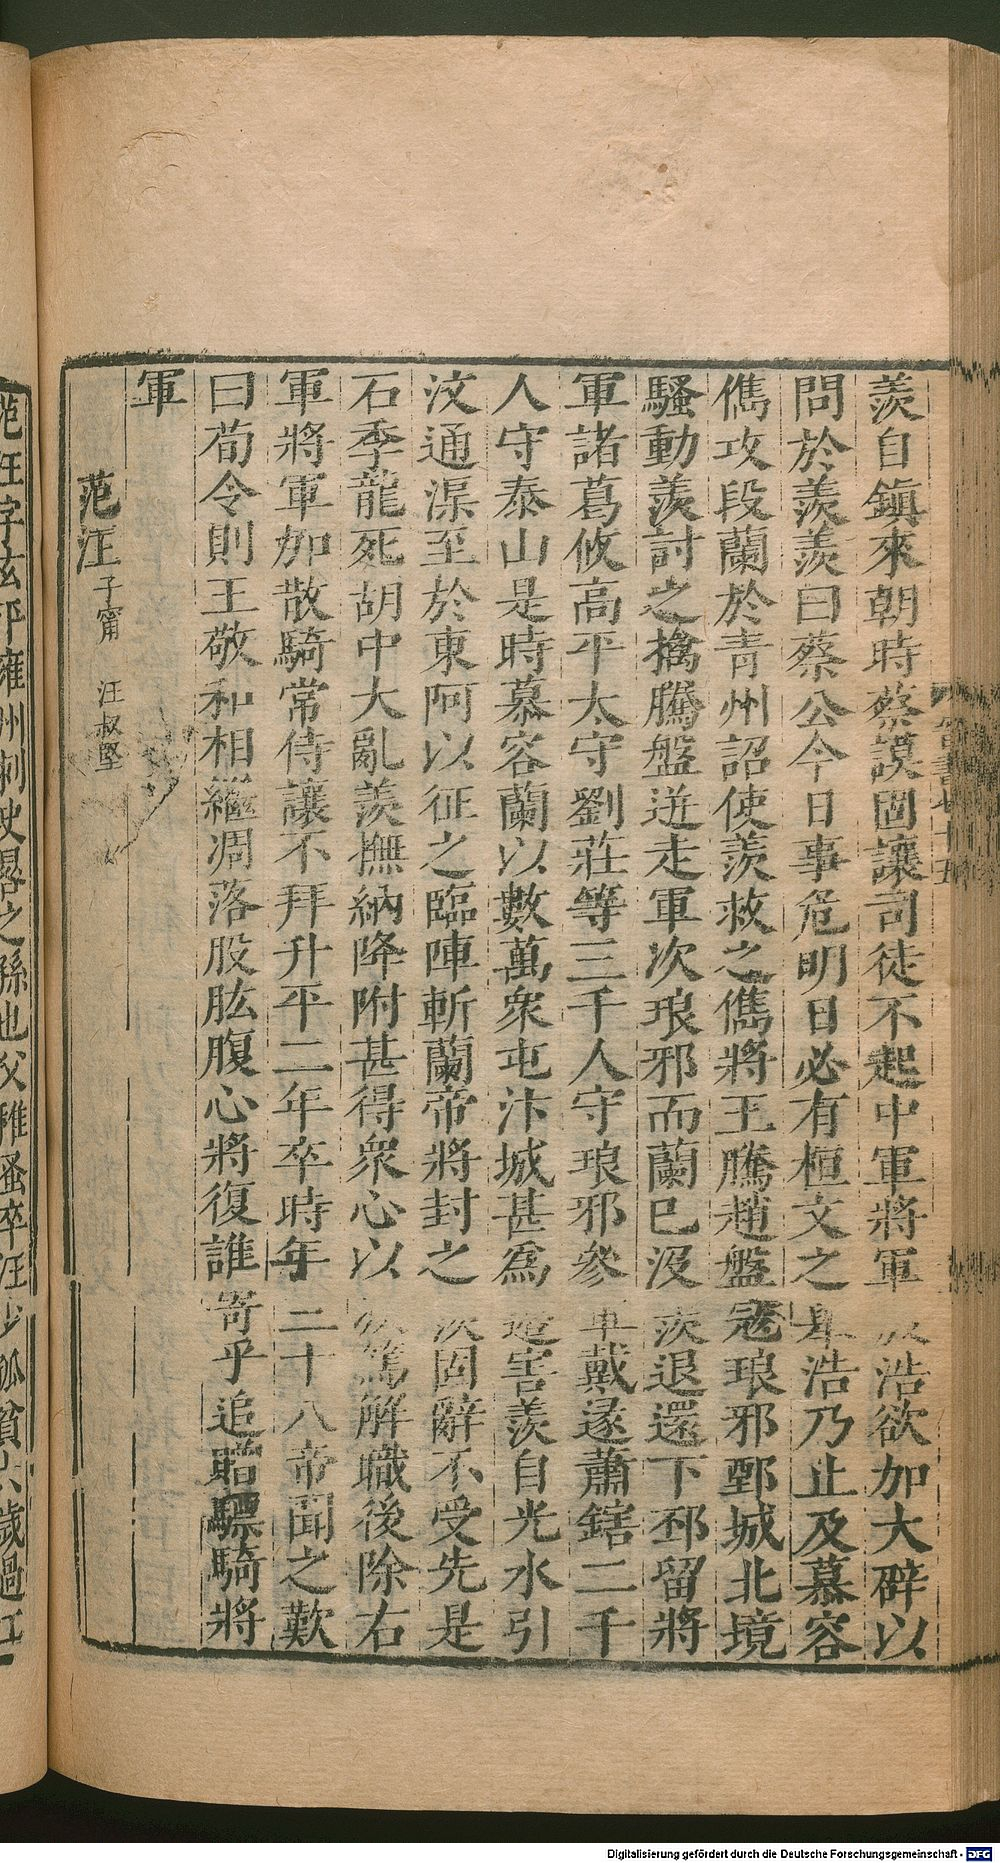 羨自鎮來朝時蔡謨固讓司徒不起中軍將軍殷浩欲加大辟以
問於羨羨曰蔡公今日事危明日必有桓文之舉浩乃止及慕容
儁攻段蘭於青州詔使羨救之儁將王騰趙盤寇琅邪鄄城北境
騷動羨討之擒騰盤迸走軍次琅邪而蘭已没羨退還下邳留將
軍諸葛攸高平太守劉莊等三千人守琅邪參軍戴逯蕭鎋二千
人守泰山是時慕容蘭以數萬衆屯汴城甚爲邊害羨自光水引
汶通渠至於東阿以征之臨陣斬蘭帝將封之羨固辭不受先是
石季龍死胡中大亂羨撫納降附甚得衆心以疾篤解職後除右
軍將軍加散騎常侍讓不拜升平二年卒時年二十八帝聞之歎
曰荀令則王敬和相繼凋落股肱腹心將復誰寄乎追贈驃騎將
軍
范汪 子甯 汪叔堅
范汪字玄平雍州刺史晷之孫也父稚蚤卒汪少孤貧六歲過江
晉書七十五
Digitalisierung gefördert durch die Deutsche Forschungsgemeinschaft - DFG